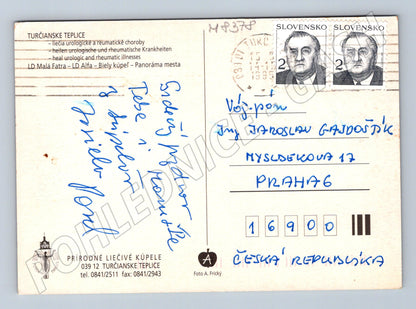 M 8378
TURČIANSKE TEPLICE
- liečia urologické a reumatické choroby
- heilen urologische und rheumatische Krankheiten
- heal urologic and rheumatic illnesses
LD Malá Fatra - LD Alfa - Biely kúpeľ - Panoráma mesta
SLOVENSKO
2
SLOVENSKO
2
Srdečný pozdrav
z kúpeľov
Váž. pán
Ing JAROSLAV GAJDOŠTÍK
MYSLBEKOVA 17
PRAHA 6
16900
ČESKÁ REPUBLIKA
PRÍRODNÉ LIEČIVÉ KÚPELE
039 12 TURČIANSKE TEPLICE
tel. 0841/2511 fax. 0841/2943
A
Foto A. Frický
POHLEDNICE